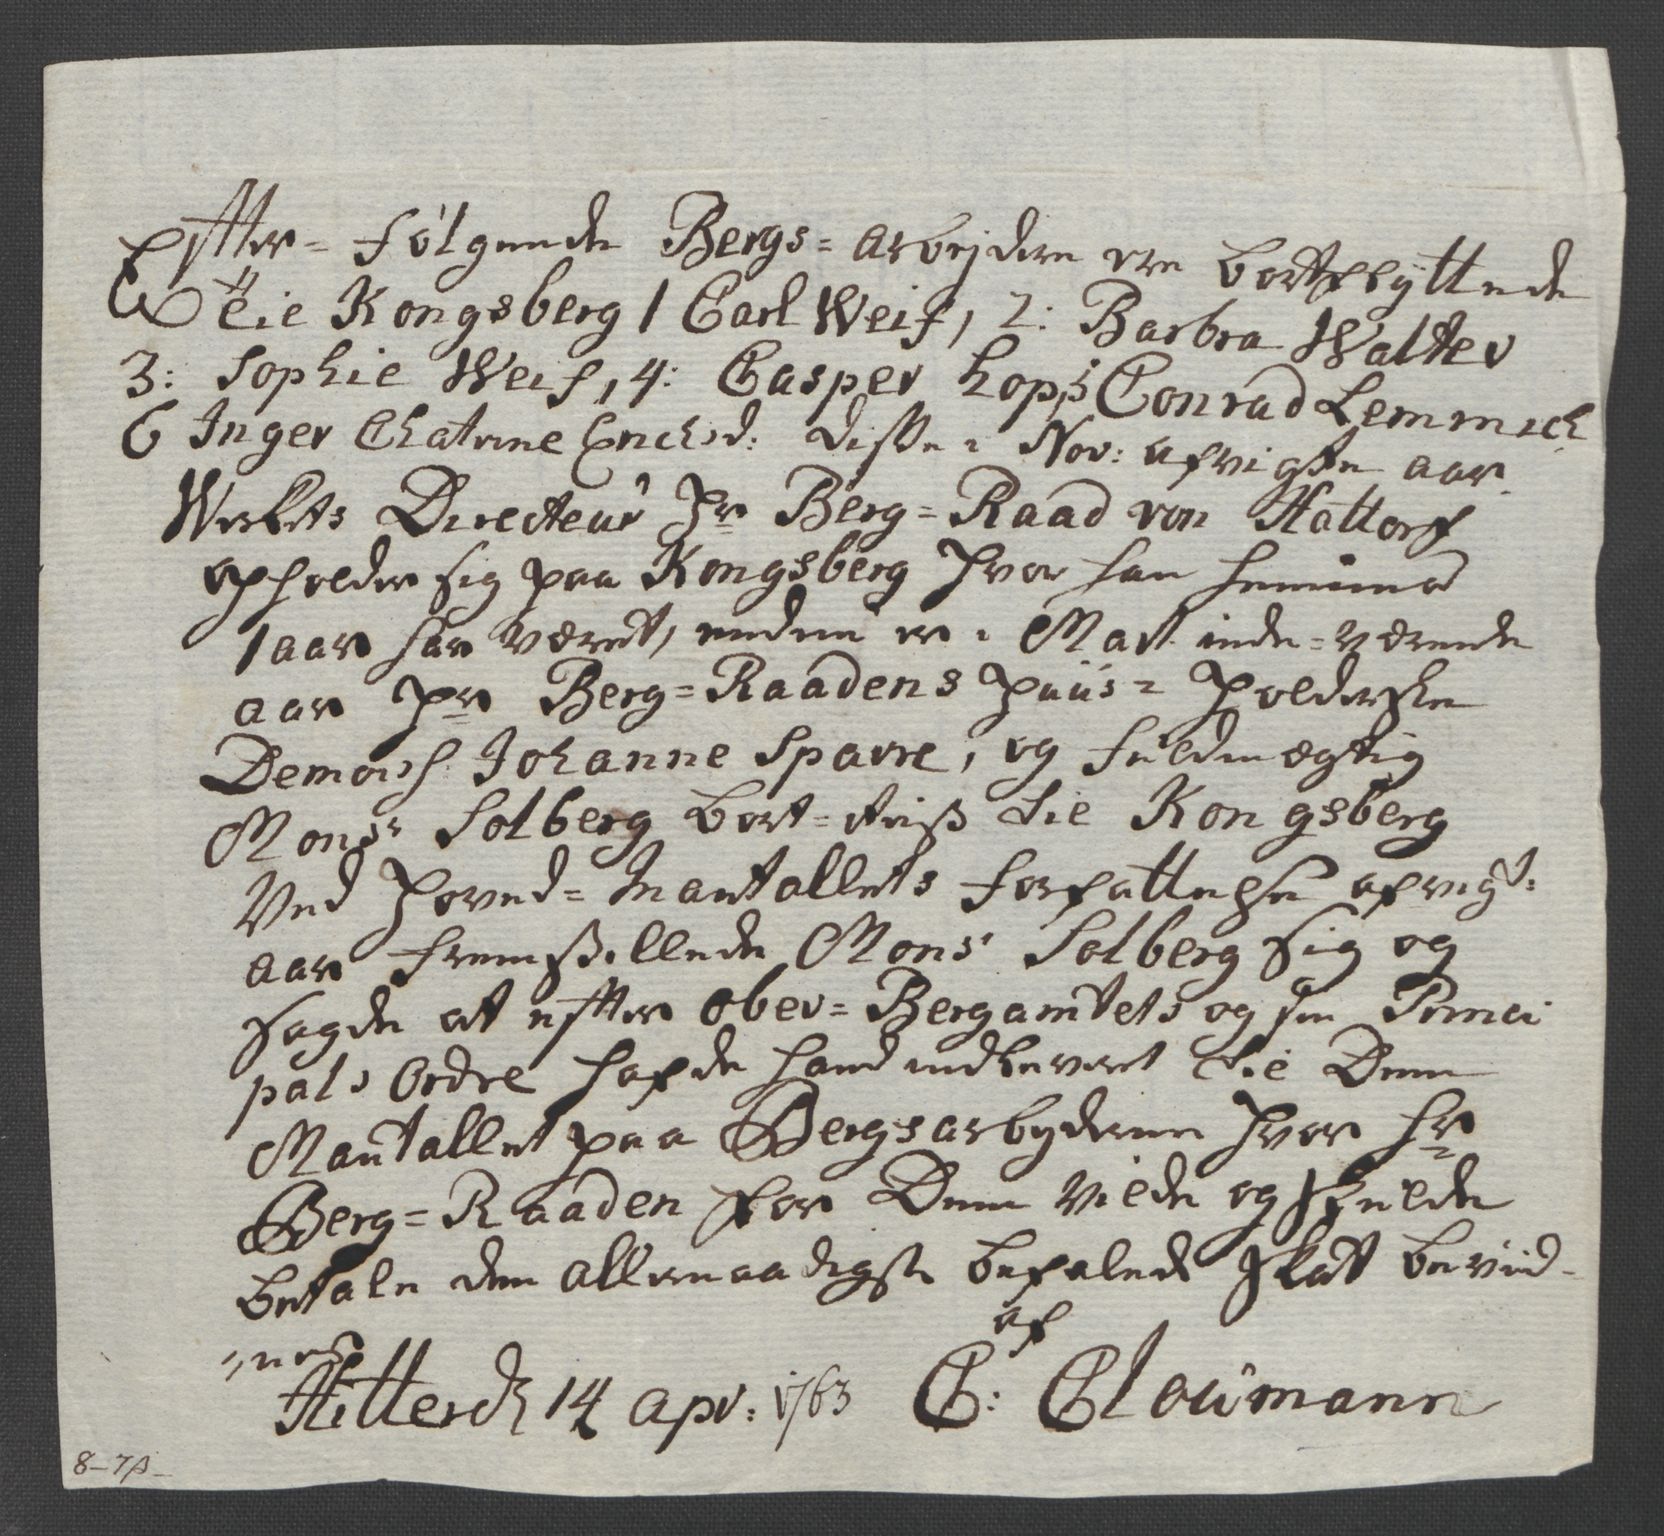 Efter = følgende Bergs = arbejdere ere bortflyttede
til Kongsberg 1 Carl Weis, 2: Barbra Walter
3: Sophie Weis, 4: Casper Hopp, 5 Conrad Lemmich
6 Inger Chatrine Erichsd: disse i Nov: afvigte aar
Werkets Directeur Hr Berg = Raad von Hattorf
opholder sig paa Kongsberg hvor han henimod
1 aar har været, endnu er i Mart: inde = værende
aar Hr Berg = Raadens Huus = Holderske
Demois: Johanne Sparre, og fuldmægtig
Monsr Solberg bort = reist til Kongsberg
Ved Hoved = Mantallets forfattelse afvigt:
aar fremstillede Monsr Solberg sig og
sagde at efter Ober = Bergamtets og sin Princi
pals Ordre hafde hand indleveret til Dem
Mantallet paa Bergsarbejderne hvor Hr
Berg = Raaden for Dem vilde og skulde
betale den allernaadigst befalede Skat bevid-
"nes af
Hitterdl 14 Apr: 1763 C: Cloumann
8-7β-